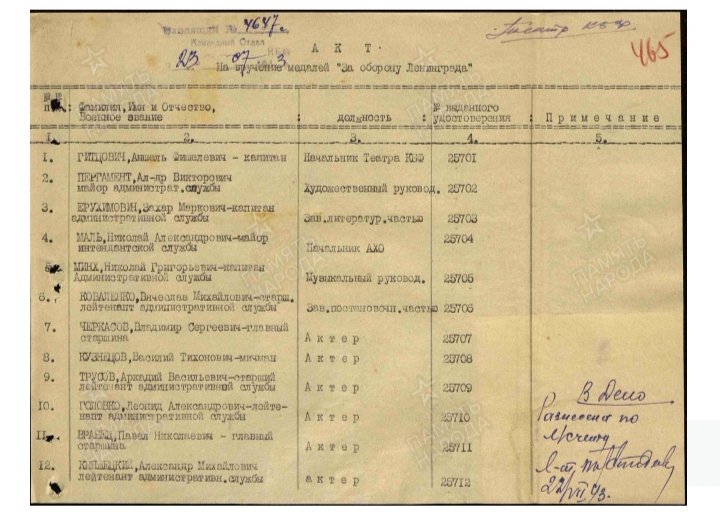 Входящий № 4647.
Командный Отдел
Театр КБФ
23 07 3
465
А К Т.
На вручение медалей "За оборону Ленинграда"
Фамилия, Имя и Отчество, Военное звание : должность : № выданного удостоверения : Примечание
1. 2. 3. 4. 5.
1. ГИТЦОВИЧ, Аншель Фишелевич - капитан Начальник Театра КБФ 25701
2. ПЕРГАМЕНТ, Ал-др Викторович
майор административ. службы Художественный руковод. 25702
3. ЕРУХИМОВИЧ, Захар Маркович-капитан
административной службы Зав.литератур.частью 25703
4. МАЛЬ, Николай Александрович-майор 25704
интендантской службы Начальник АХО
5. МИНХ, Николай Григорьевич-капитан
Административной службы Музыкальный руковод. 25705
6. КОВАЛЕНКО, Вячеслав Михайлович-старш.
лейтенант административной службы Зав.постановочн.частью 25706
7. ЧЕРКАСОВ, Владимир Сергеевич-главный
старшина А к т е р 25707
8. КУЗНЕЦОВ, Василий Тихонович-мичман А к т е р 25708
9. ТРУСОВ, Аркадий Васильевич-старший
лейтенант административный службы А к т е р 25709
10. ГОЛОВКО, Леонид Александрович-лейте-
нант административной службы А к т е р 25710
11. Павел Николаевич - главный
старшина А к т е р 25711
12. Александр Михайлович
лейтенант административн.службы а к т е р 25712
В Дело
Разнесена по
л/счету
22/VII 43.
ПАМЯТЬ НАРОДА